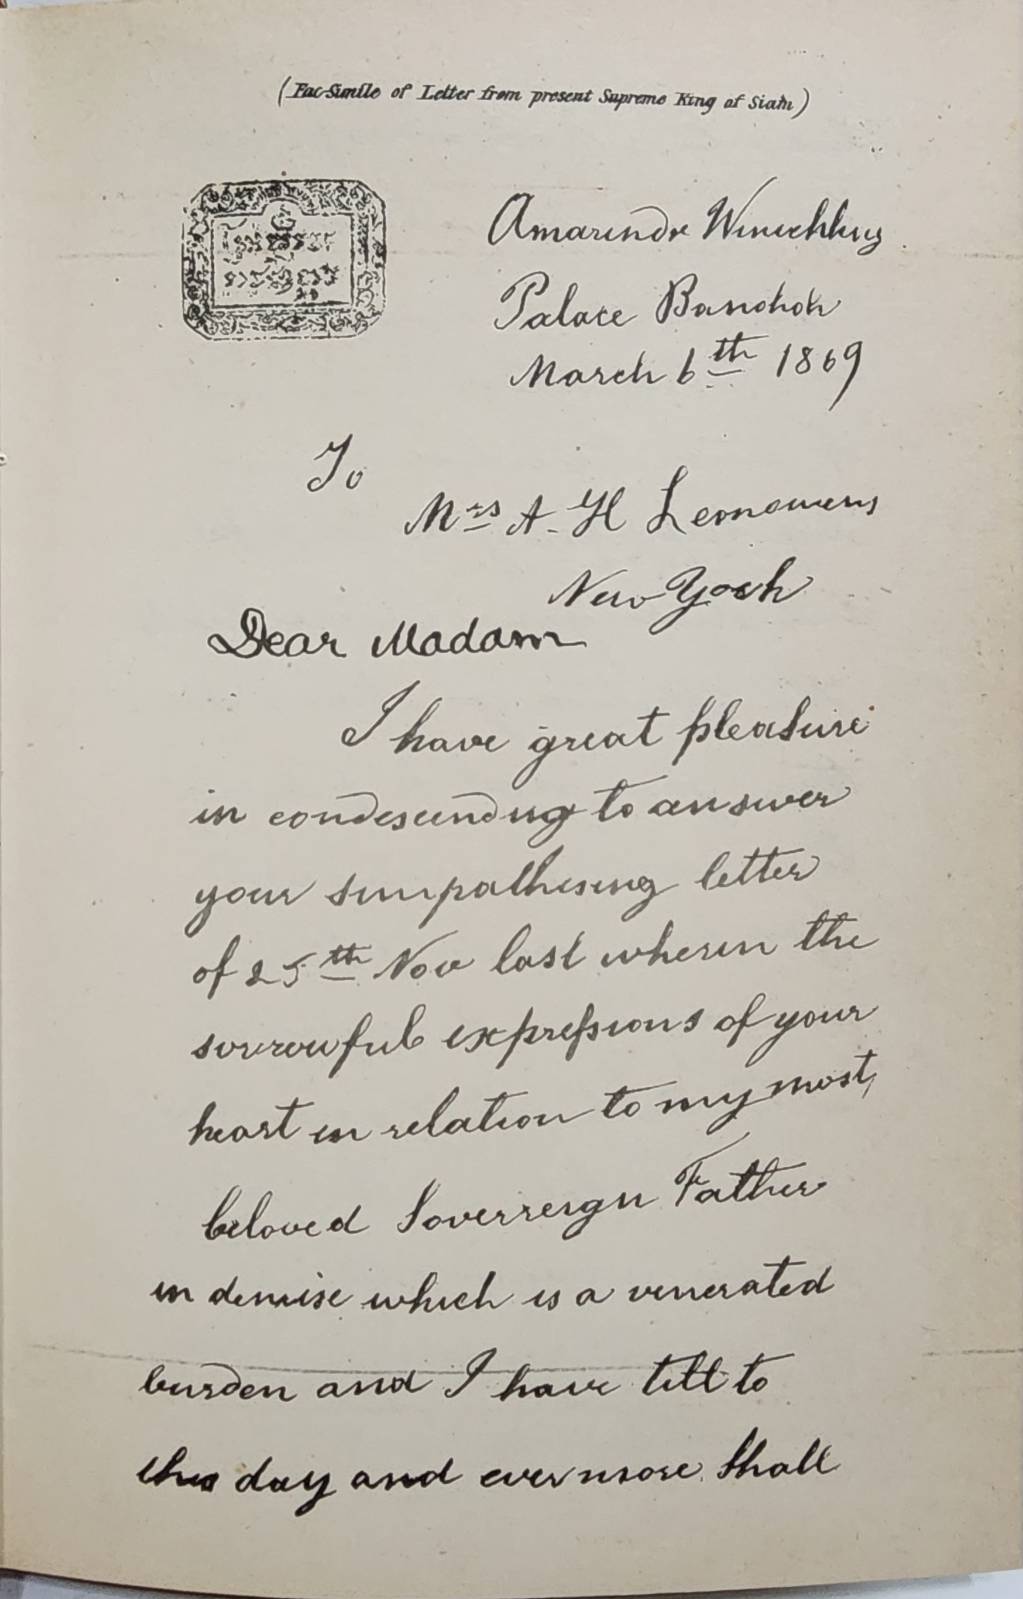 (Fac-Simile of Letter from present Supreme King of Siam)
Amarindr Winichhay
Palace Bangkok
March 6th 1869
To
Mrs A. H Leonowens
New York
Dear Madam
I have great pleasure
in condescending to answer
your simpathising letter
of 25th Nov last wherein the
sorrowful expressions of your
heart in relation to my most
beloved Soverreign Father
in demise which is a venerated
burden and I have till to
this day and ever more shall